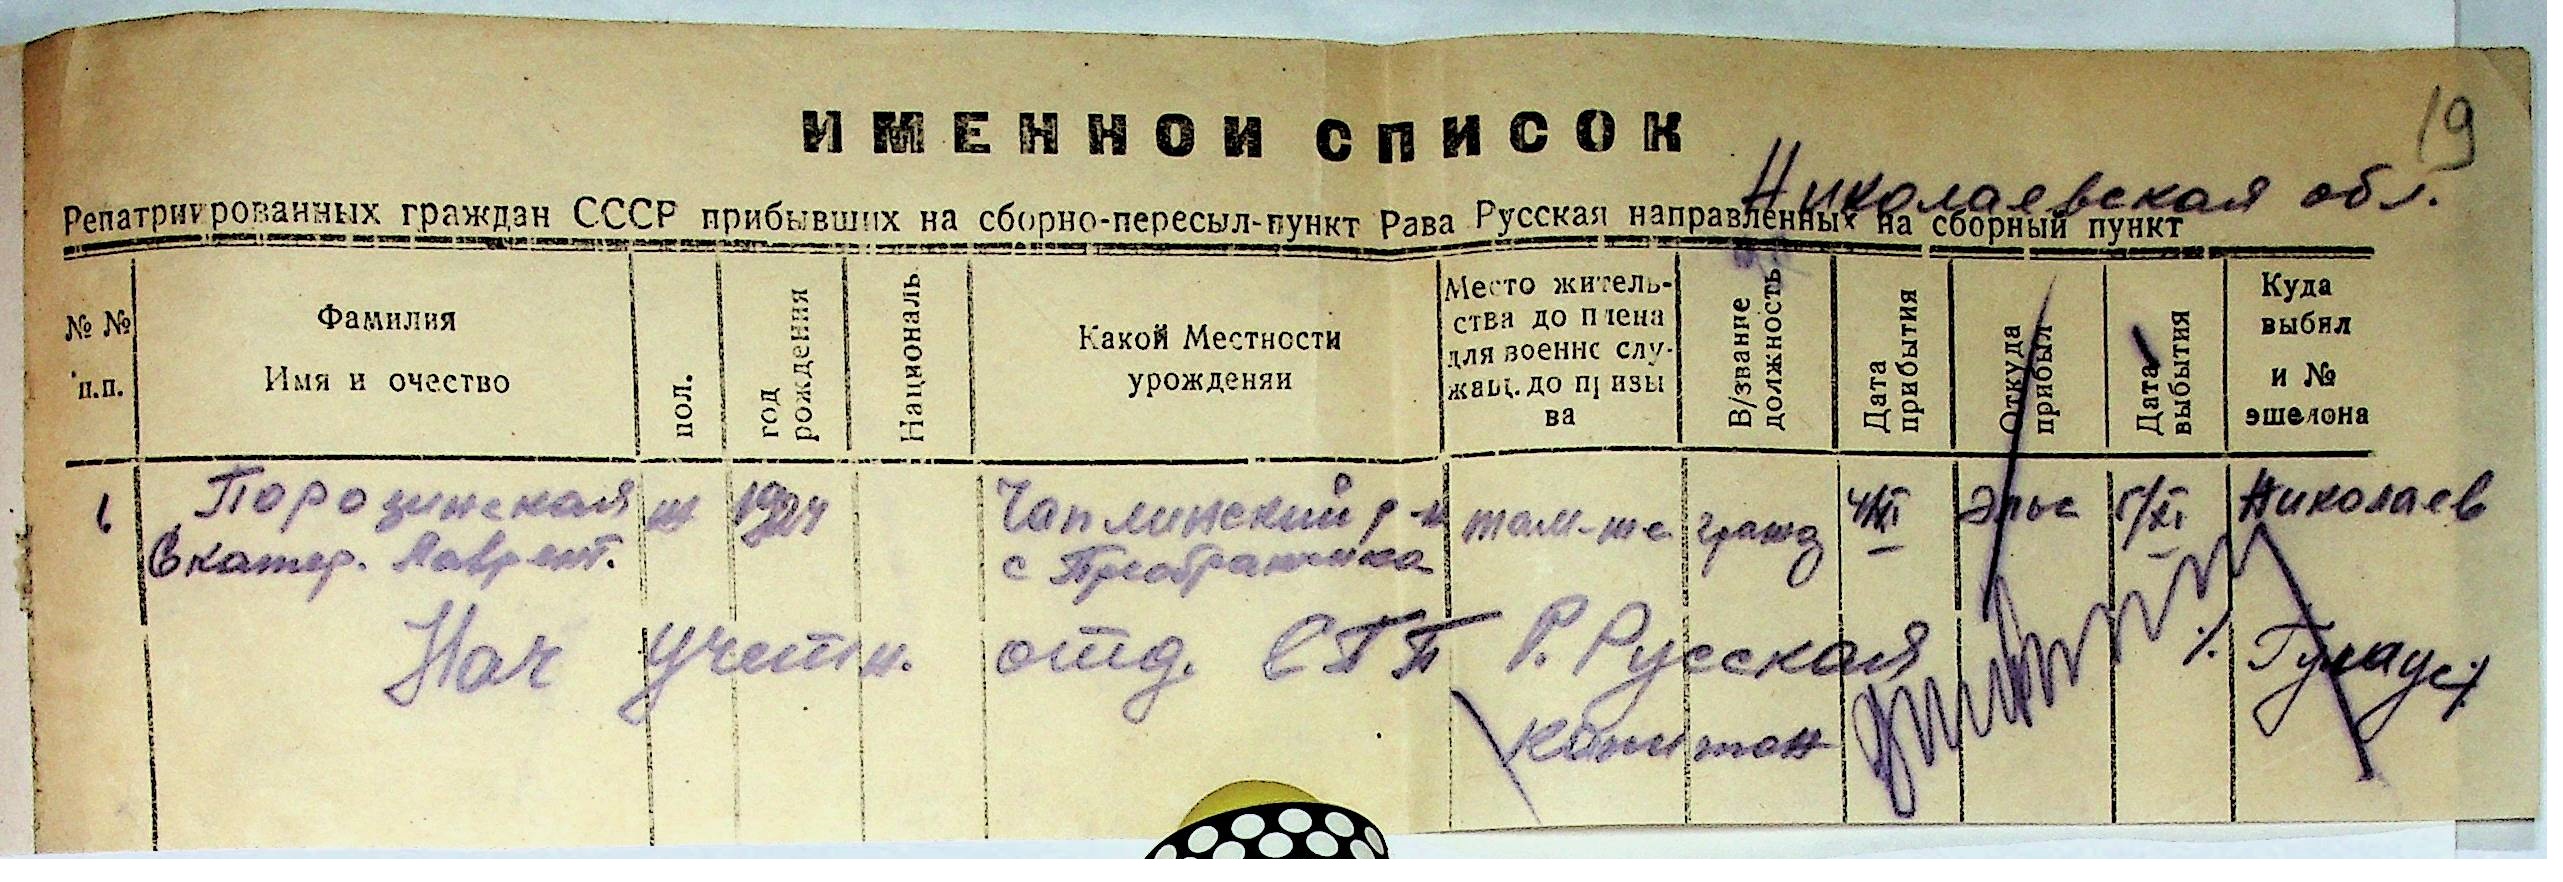 19
ИМЕННОЙ СПИСОК
Николаевская обл.
Репатриированных граждан СССР прибывших на сборно-пересыл-пункт Рава Русская направленных на сборный пункт
№ №
п.п.
Фамилия
Имя и очество
пол.
год
рождения
Националь
Какой Местности
урожденяи
Место житель-
ства до плена
для военно слу-
жащ. до призы
ва
В/звание
должность
Дата
прибытия
Откуда
прибыл
Дата
выбытия
Куда
выбил
и №
эшелона
1. Порозинская ж 1924 Чаплинский р-н там-же гражд Николаев
Екатер. Лаврент. с Преображенка
Нач учетн. отд. СПП Р. Русская
Капитан